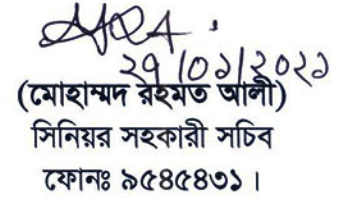 ২৭/০১/২০২১
(মোহাম্মদ রহমত আলী)
সিনিয়র সহকারী সচিব
ফোনঃ ৯৫৪৫৪৩১।